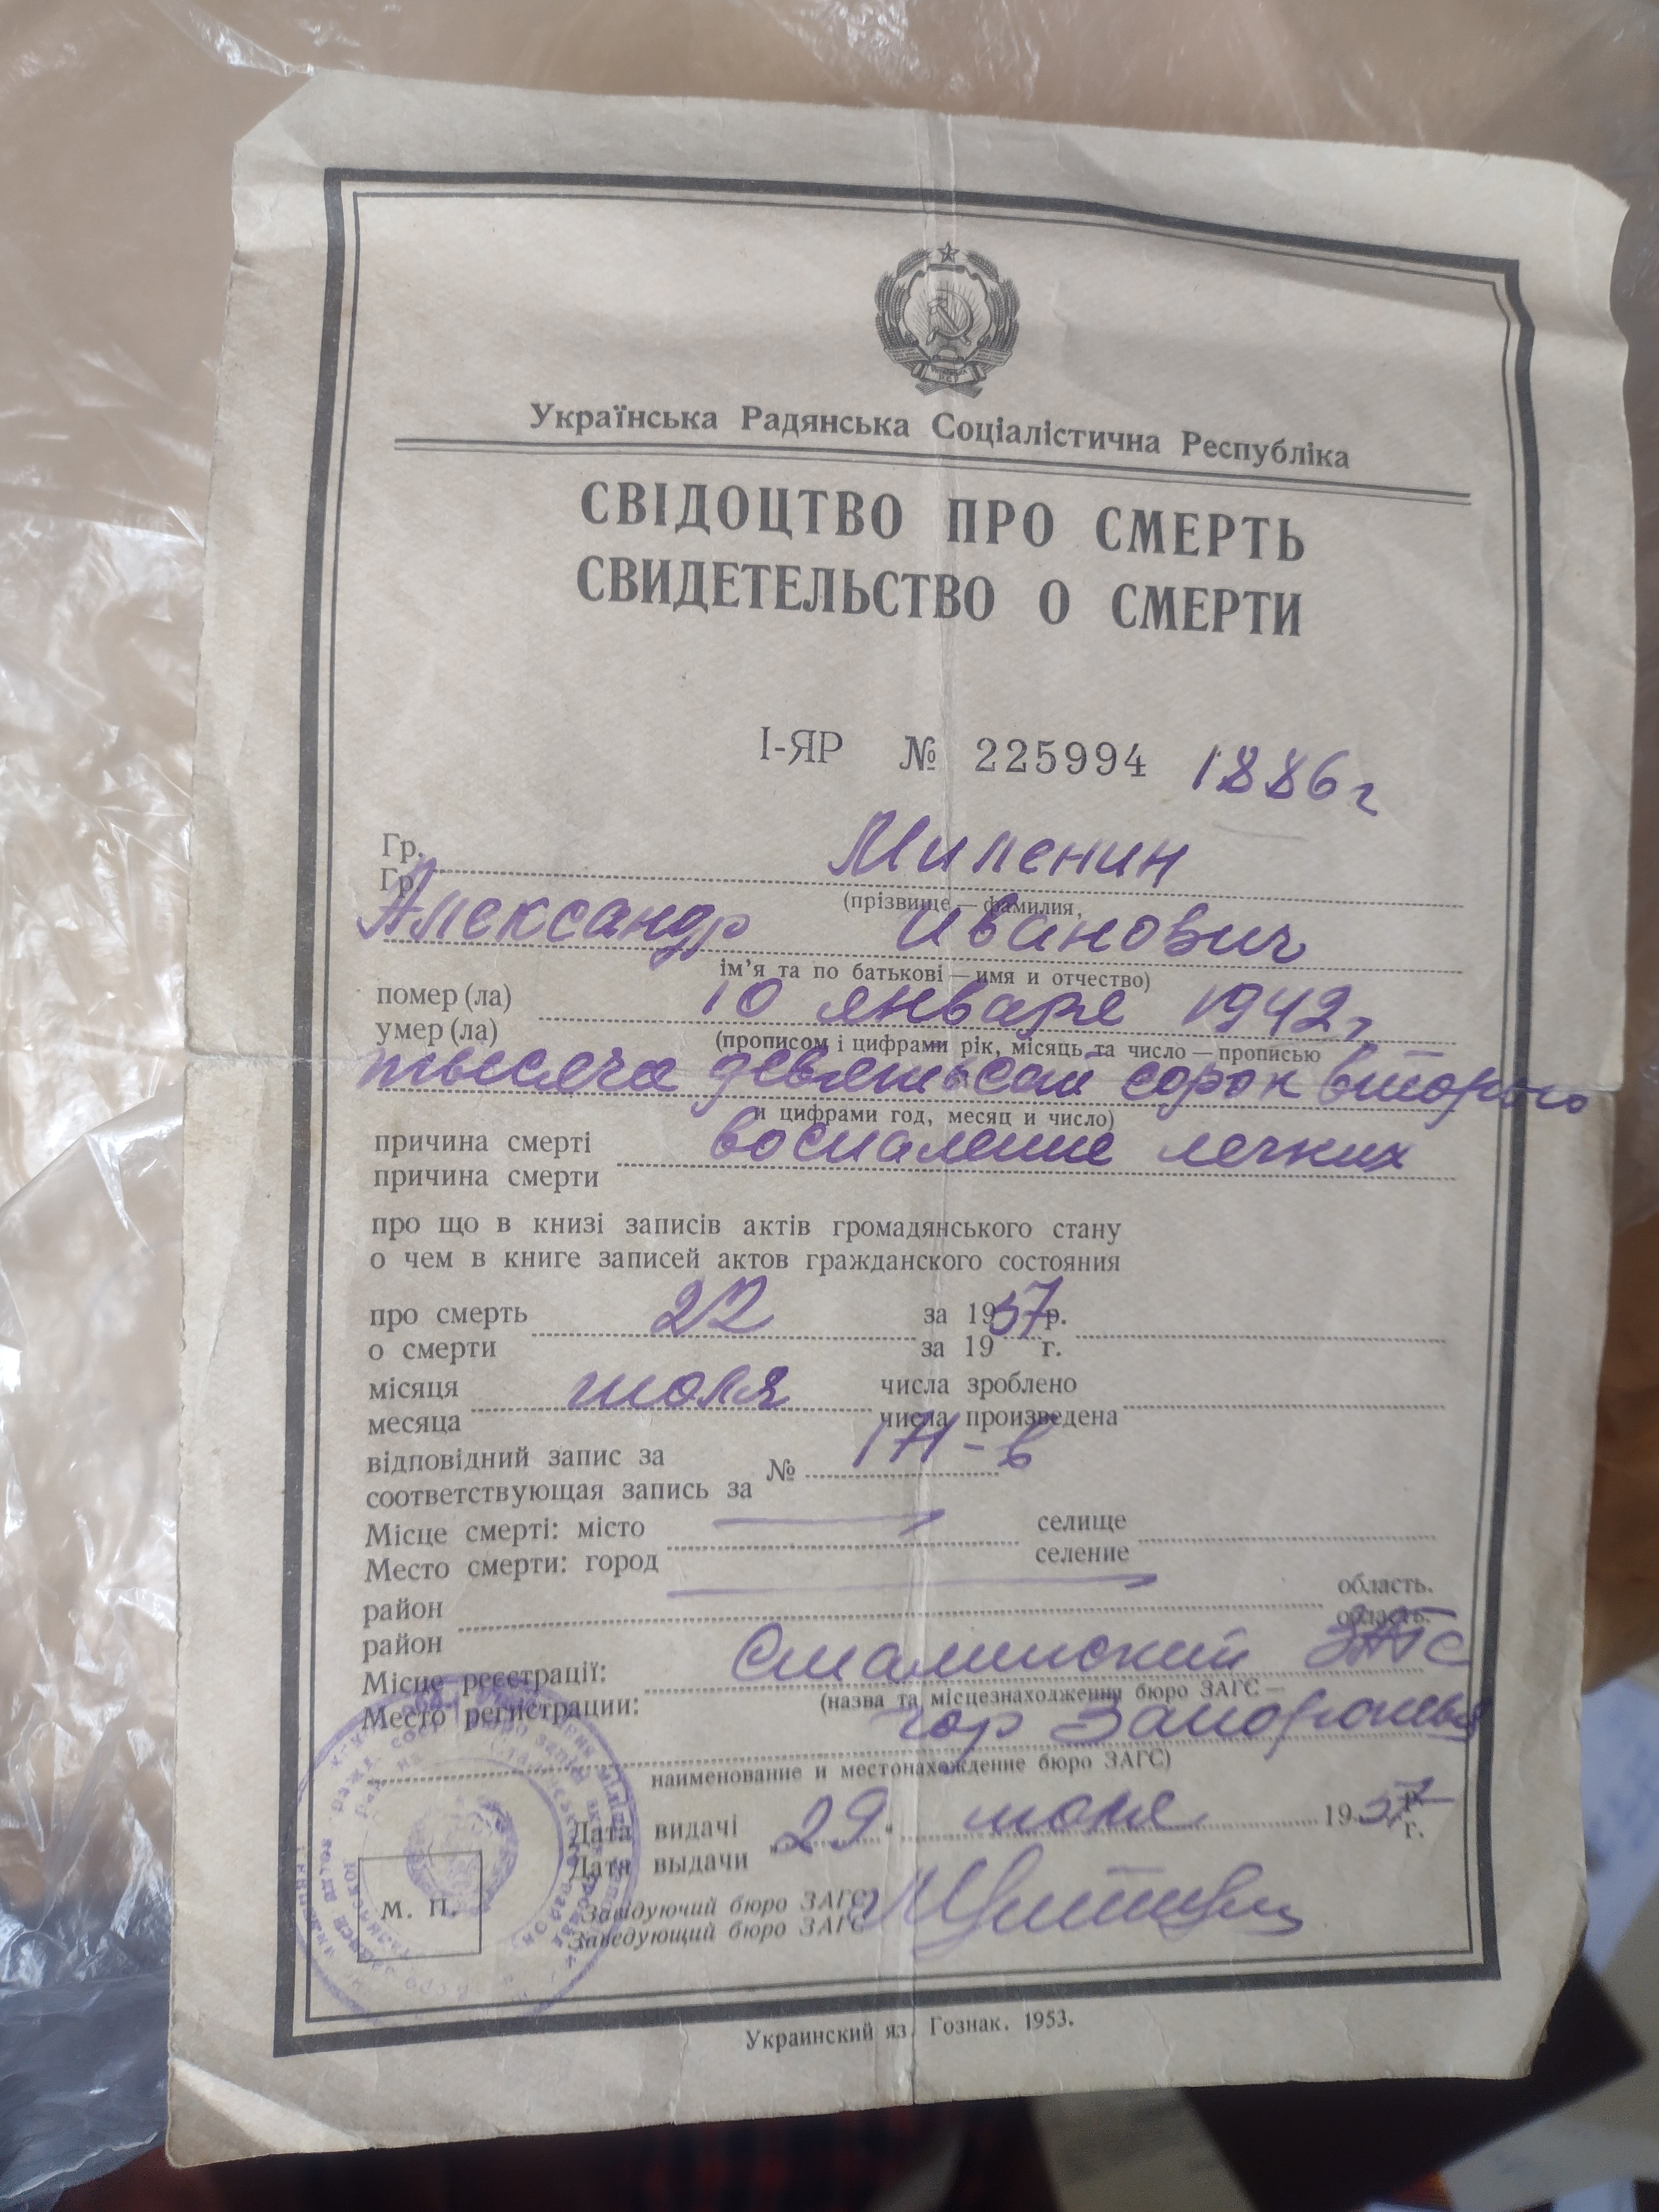 Українська Радянська Соціалістична Республіка
СВІДОЦТВО ПРО СМЕРТЬ
СВИДЕТЕЛЬСТВО О СМЕРТИ
І-ЯР № 225994 1886 г
Гр. Миленин
Гр.
(прізвище — фамилия,
Александр Иванович
ім’я та по батькові — имя и отчество)
помер (ла) 10 января 1942 г,
умер (ла)
(прописом і цифрами рік, місяць та число — прописью
тысяча девятьсот сорок второго
и цифрами год, месяц и число)
причина смерті воспаление легких
причина смерти
про що в книзі записів актів громадянського стану
о чем в книге записей актов гражданского состояния
про смерть 22 за 1957 р.
о смерти за 19 г.
місяця июля числа зроблено
месяца числа произведена
відповідний запис за № 171-в
соответствующая запись за
Місце смерті: місто селище
Место смерти: город селение
район область.
район область.
Місце реєстрації: Сталинский ЗАГС
Место регистрации: (назва та місцезнаходження бюро ЗАГС —
гор Запорожья
наименование и местонахождение бюро ЗАГС)
Дата видачі 29 июля 1957 р.
Дата выдачи г.
М. П.
Завідуючий бюро ЗАГС
Заведующий бюро ЗАГС
Украинский яз. Гознак. 1953.